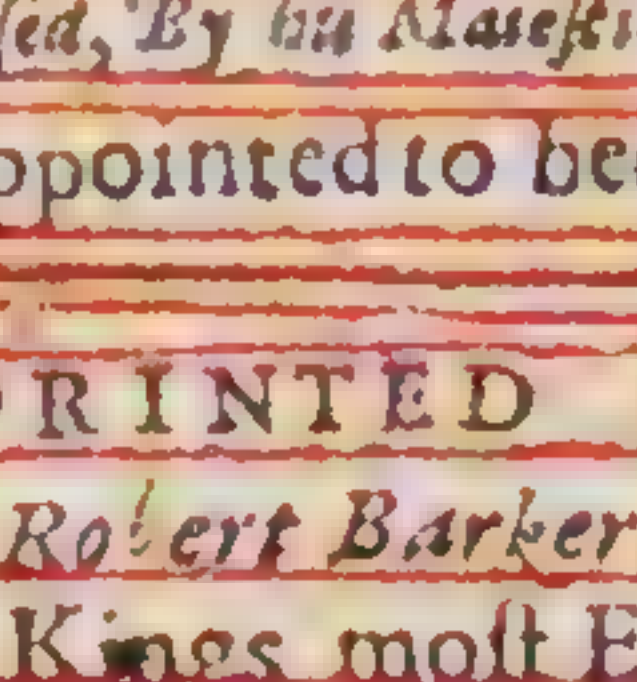 sed, By his Maiesti
ppointed to be
PRINTED
Robert Barker
Kings moſt E